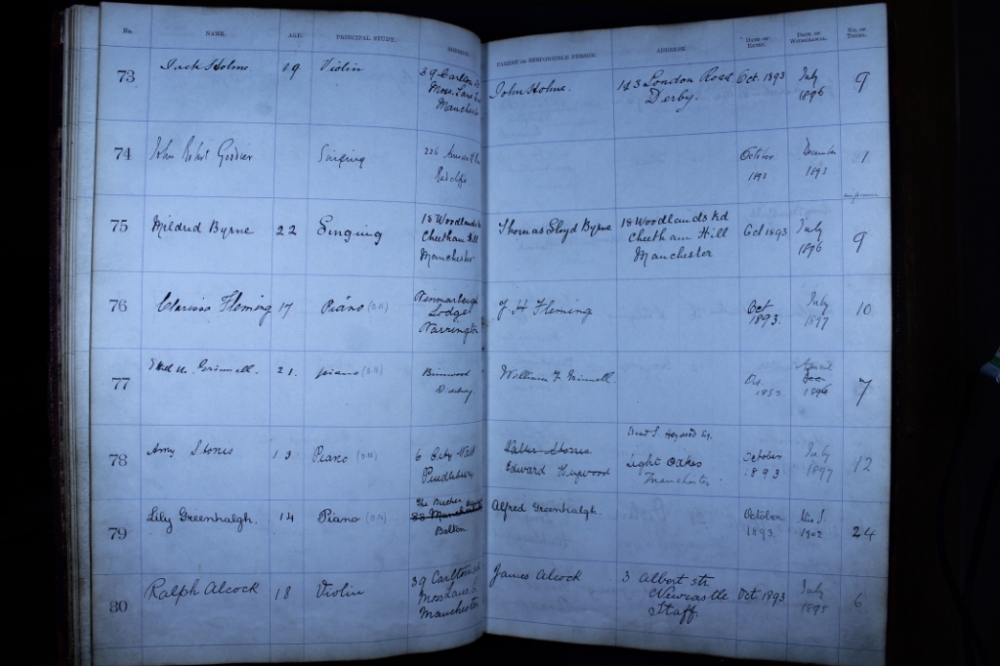 No. NAME. AGE. PRINCIPAL STUDY. PARENT OR RESPONSIBLE PERSON. ADDRESS. DATE OF ENTRY. DATE OF WITHDRAWAL. NO. OF TERMS.
73 Jack Holme 19 Violin 39 Carlton John Holme. 143 London Road Oct. 1893 July 9
Moss Lane Derby. 1896
Manchester
74 John Robert Singing 226 October December 1
Radcliffe 1893 1893
75 Mildred Byrne 22 Singing 18 Woodlands Rd Thomas Lloyd Byrne 18 Woodlands Rd Oct 1893 July 9
Cheetham Hill Cheetham Hill 1896
Manchester Manchester
76 Clarissa Fleming 17 Piano (O.N) Lodge J H Fleming Oct July 10
Warrington 1893. 1897
77 Grimwell. 21. piano (O.N) William F April 7
Didsbury 1896
78 Amy Stones 13 Piano (O.N) 6 City Walk Stones Light Oakes October July 12
Pendlebury Edward Heywood Manchester 1893 1897
79 Lily Greenhalgh. 14 Piano (O.N) The Alfred Greenhalgh. October 24
88 Manchester Bolton 1893 1902
80 Ralph Alcock 18 Violin 39 Carlton str James Alcock 3 Albert str Oct 1893 July 6
Moss Lane E Newcastle 1895
Manchester Staff.